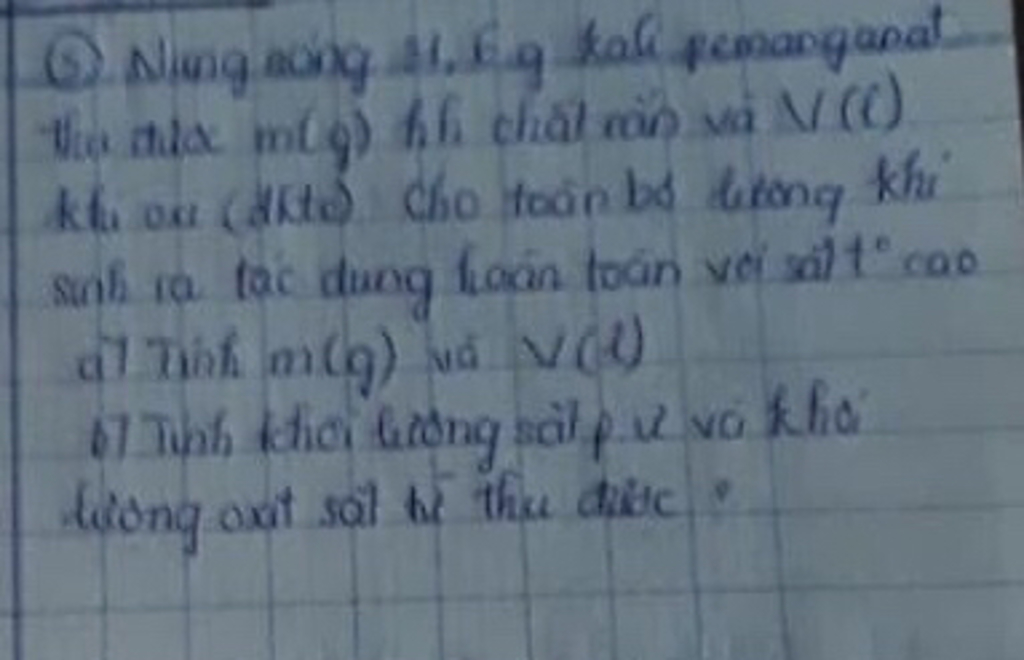 ⑤ Nung nóng 31,6g kali pemanganat
thu được m(g) hh chất rắn và V(l)
khí oxi (đktc) Cho toàn bộ lượng khí
sinh ra tác dụng hoàn toàn với sắt t° cao
a) Tính m(g) và V(l)
b) Tính khối lượng sắt p.ư và khối
lượng oxit sắt từ thu được .